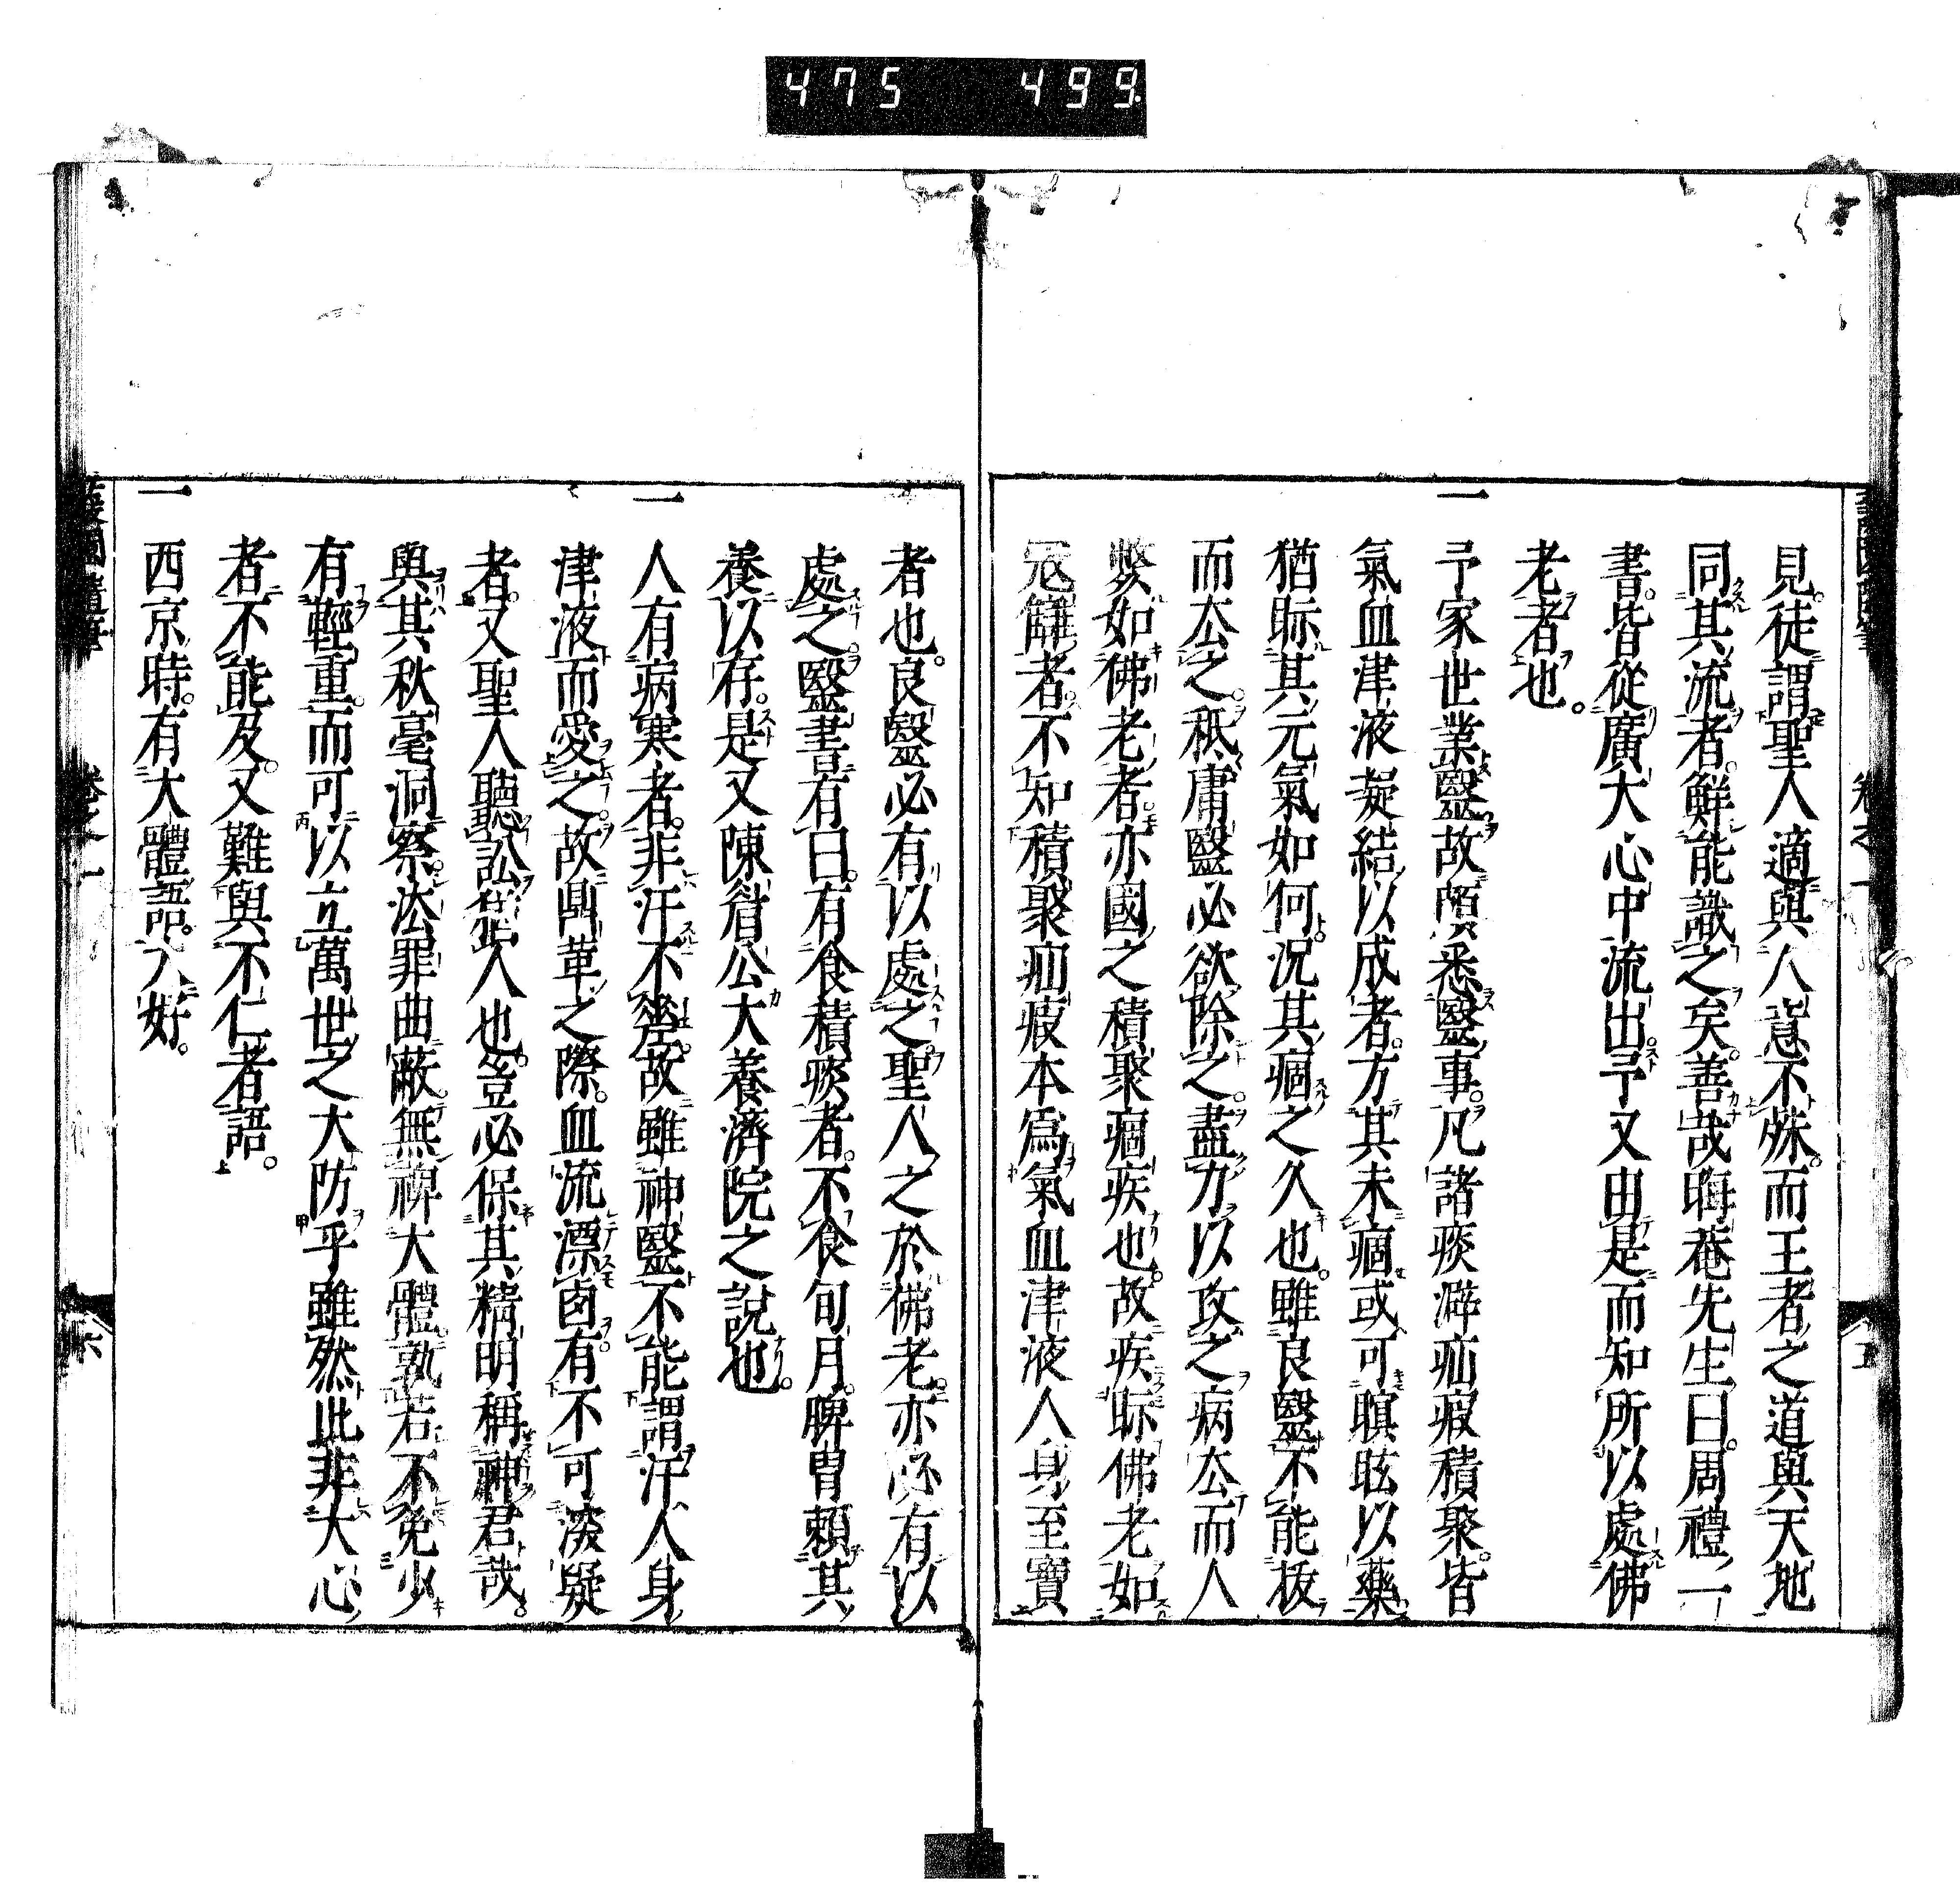 475 499
見。徒謂聖人適與人意不殊。而王者之道與天地
同其流者。鮮能識之矣。善哉晦菴先生曰。周禮一
書。皆從廣大心中流出。予又由是而知所以處佛
老者也。
一予家世業醫。故頗悉醫事。凡諸痰澼疝瘕積聚。皆
氣血津液凝結以成者。方其未痼或可瞑眩以藥
猶眎其元氣如何。況其痼之久也。雖良醫不能扳
而厺之。秖庸醫必欲除之。盡力以攻之病厺而人
斃。如佛老者亦國之積聚痼疾也。故疾眎佛老如
宼讎者。不知積聚疝瘕本爲氣血津液人身至寶
者也。良醫必有以處之。聖人之於佛老。亦必有以
處之。醫書有曰。有食積痰者。不食旬月。脾胃賴其
養以存。是又陳省公大養濟院之說也。
一人有病寒者。非汗不瘳。故雖神醫不能謂汗人身
津液而愛之。故鼎革之際。血流漂鹵有不可淡疑
者。又聖人聽訟猶人也。豈必保其精明稱神君哉。
與其秋毫洞察。泫罪曲蔽。無裨大體孰若不免少
有輕重。而可以立萬世之大防乎雖然此非大心
者不能及。又難與不仁者語。
一西京時。有大體語。大好。
卷之一